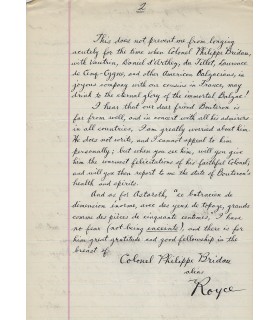 2
This does not prevent me from longing
acutely for the time when Colonel Philippe Bridau,
with Vautrin, Daniel d'Arthez, du Tillet, Laurence
de Cinq-Cygne, and other American Balzacians, in
joyous company with our cousins in France, may
drink to the eternal glory of the immortal Balzac!
I hear that our dear friend Bouteron is
far from well, and in concert with all his admirers
in all countries, I am greatly worried about him.
He does not write, and I cannot appeal to him
personally; but when you see him, will you give
him the warmest felicitations of his faithful Colonel,
and will you then report to me the state of Bouteron's
health and spirits.
And as for Astaroth, "ce batracien de
dimension énorme, avec des yeux de topaze, grands
comme des pièces de cinquante centimes," I have
no fear (not being enceinte), and there is for
him great gratitude and good fellowship in the
breast of
Colonel Philippe Bridau
alias
Royce